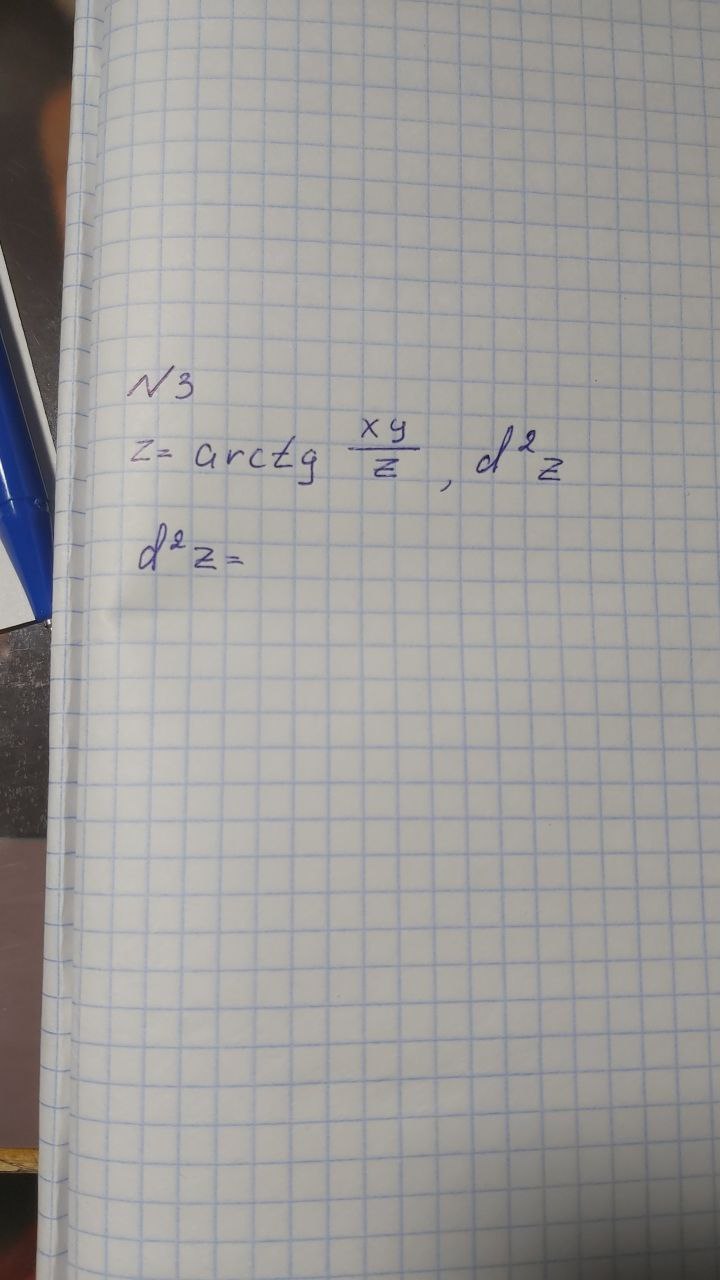 N3
z= arctg xy/z, d²z
d²z=